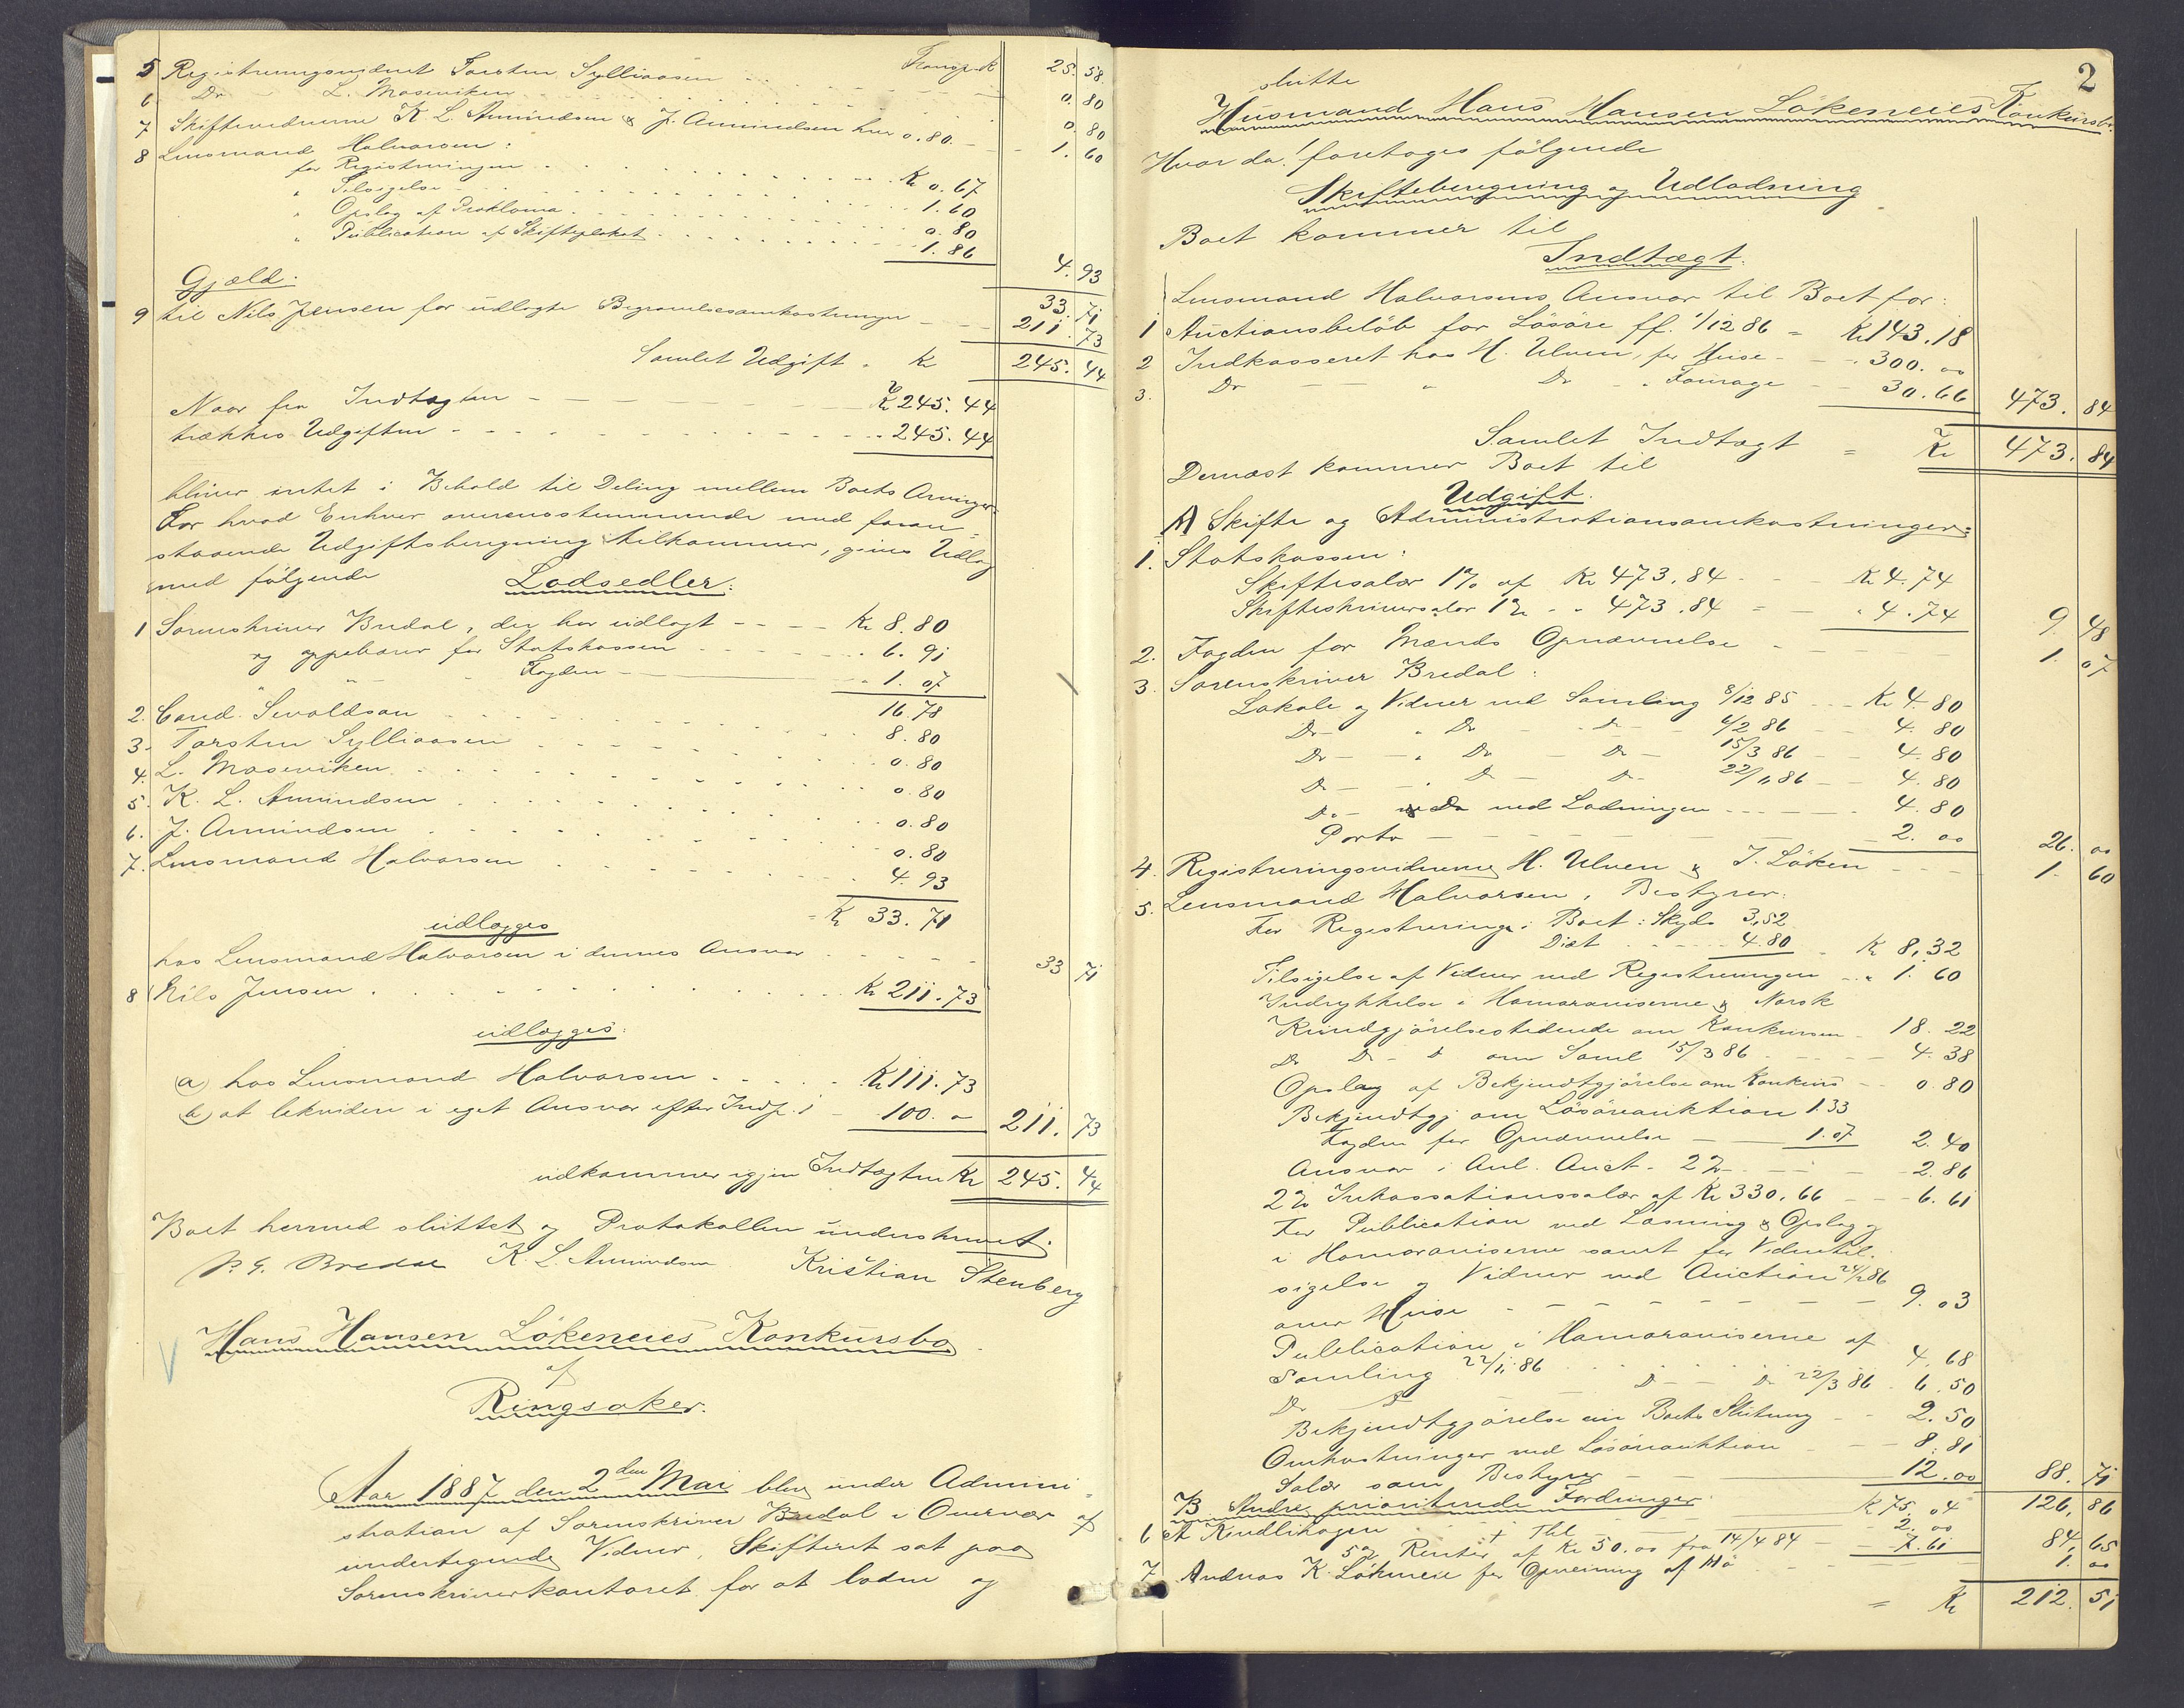 Transport 25.58
5 Registreringsvidnet Torsten Sylliaasen - - 0.80
6. Do - L. Moseviken - - 0.80
7 Skiftevidnerne K. L. Amundsen & J. Amundsen hver 0.80. - - 1.60
8 Lensmand Halvorsen:
for Registreringen - - Kr 0.67
" Tilsigelse - - 1.60
" Opslag af Proklama - - 0.80
" Publication af Skifteplakat - - 1.86
4.93
33.71
Gjæld:
9 til Nils Jensen for udlagte Begravelsesomkostninger - - 211.73
Samlet Udgift. Kr 245.44
Naar fra Indtægten - - Kr 245.44
trækkes Udgiften - - 245.44
bliver intet i Behold til Deling mellem Boets Arvinger.
For hvad Enhver overensstemmende med foran-
staaende Udgiftsberegning tilkommer, gives Udlæg
med følgende Lodsedler:
1 Sorenskriver Bredal, der har udlagt - - Kr 8.80
og oppebærer for Statskassen - - 6.91
" - - Fogden - - 1.07
16.78
2. Cand. Sevaldson - - 8.80
3. Torsten Sylliaasen - - 0.80
4. L. Moseviken - - 0.80
5. K. L. Amundsen - - 0.80
6. J. Amundsen - - 0.80
7. Lensmand Halvorsen - - 4.93
= Kr 33.71
udlægges
hos Lensmand Halvorsen i dennes Ansvar - - 33 71
8 Nils Jensen - - Kr 211.73
udlægges:
a) hos Lensmand Halvorsen - - Kr 111.73
b) at likvidere i eget Ansvar efter Indt. 1 - 100. - 211.73
udkommer igjen Indtægten Kr 245.44
Boet hermed sluttet og Protokollen underskrevet.
P. G. Bredal K. L. Amundsen Kristian Stenberg
Hans Hansen Lökeneies Konkursbo
af
Ringsaker.
Aar 1887 den 2den Mai blev under Admini-
stration af Sorenskriver Bredal i Overvær af
undertegnede Vidner, Skifteret sat paa
Sorenskriverkontoret for at lodne og
2
slutte
Husmand Hans Hansen Lökeneies Konkursbo.
Hvor da! foretoges følgende
Skifteberegning og Udlodning
Boet kommer til
Indtægt.
Lensmand Halvorsens Ansvar til Boet for:
1 Auctionsbeløb for Løsøre ff. 1/12 86 = Kr 143.18
2 Indkasseret hos H. Ulven, for Huse - - 300.00
3. Do - - " Do - " Fourage - - 30.66 473.84
Samlet Indtægt = Kr 473.84
Dernæst kommer Boet til
Udgift.
A Skifte og Administrationsomkostninger:
1. Statskassen:
Skiftesalær 1% af Kr 473.84 - - Kr 4.74
Skifteskriversalær 1% - " 473.84 = - " 4.74 9.48
2. Fogden for Mænds Opnævnelse - - 1.07
3. Sorenskriver Bredal:
Lokale og Vidner ved Samling 8/12 85 - - Kr 4.80
Do - " Do - - Do - 6/2 86 - - 4.80
Do - " Do - Do - 15/3 86 - - 4.80
Do - " Do - Do - 22/11 86 - - 4.80
Do - " Do ved Lodningen - - 4.80
Porto - - 2.00 26.00
4. Registreringsvidnerne H. Ulven & J. Löken - - 1.60
5. Lensmand Halvorsen, Bestyrer:
For Registrering i Boet: Skyds 3,52
Diæt - - 4.80 - Kr 8,32
Tilsigelse af Vidner ved Registreringen - - " 1.60
Indrykkelse i Hamaraviserne & Norsk
Kundgjørelsestidende om Konkursen - 18.22
Do Do - Do om Saml 15/3 86 - - 4.38
Opslag af Bekjendtgjørelse om Konkurs - - 0.80
Bekjendtgj om Løsøreauktion 1.33
Fogden for Opnævnelse - - 1.07 2.40
Ansvar i Anl. Auct. 2% - - 2.86
2% Inkassationssalær af Kr 330.66 - - 6.61
For Publication ved Læsning & Opslag og
i Hamaraviserne samt for Vidnetil-
sigelse og Vidner ved Auction 24/2 86
over Huse - - 9.03
Publication i Hamaraviserne af
Samling 22/11 86 - - 4.68
Do Do - - Do - - Do 22/3 86 - 6.50
Bekjendtgjørelse om Boets Slutning - - 2.50
Omkostninger ved Løsøreauktion - - 8.81
Salær som Bestyrer - - 12.00 88.71
126,86
B Andre prioriterede Fordringer
6 A Kindlihagen - - Kr 75.04
+ Till - - 2.00
5% Renter af Kr 50.00 fra 14/4 84 - - 7.61 84,65
7 Andreas K. Lökeneie for Opveining af Hö - - 1.00
= Kr 212.51